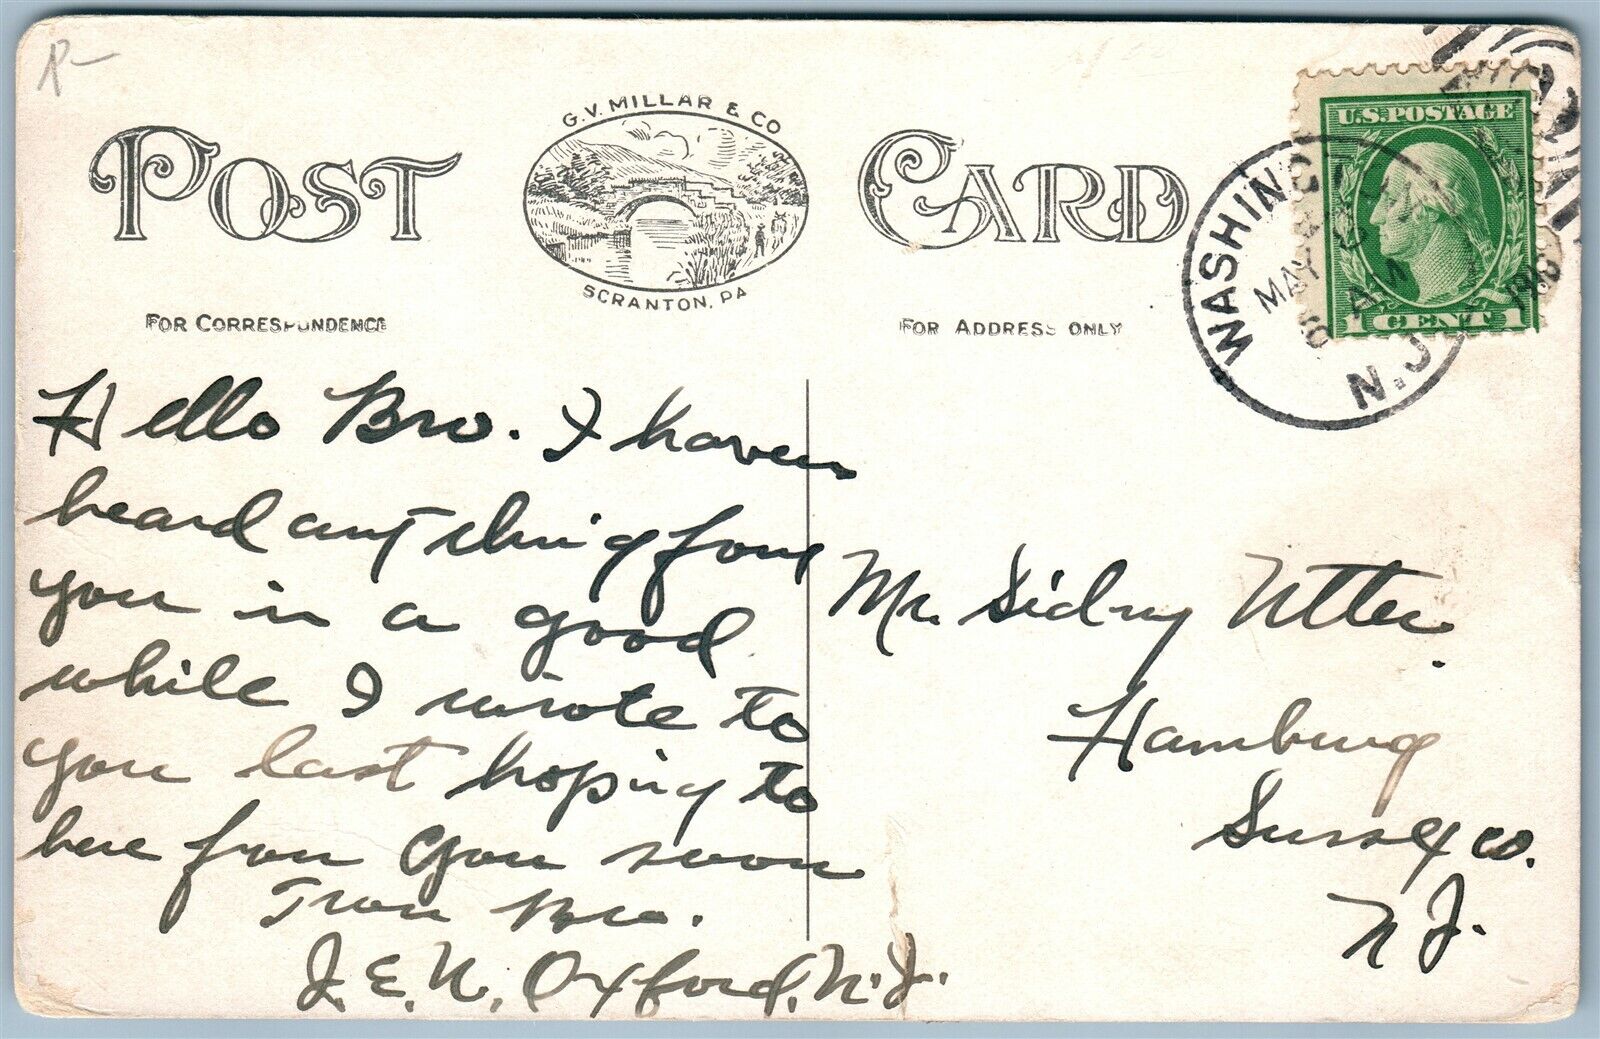 P-
G.V. MILLAR & CO
POST CARD
SCRANTON, PA
FOR CORRESPONDENCE
FOR ADDRESS ONLY
U.S. POSTAGE
1 CENT 1
WASHINGT
N.J.
MAY
AM
1912
Hello Bro. I haven
heard anything from
you in a good
while I wrote to
you last hoping to
here from you soon
From Bro.
J.E.U, Oxford, N.J.
Mr. Sidney Utter.
Hamburg
Sussex co.
N J.